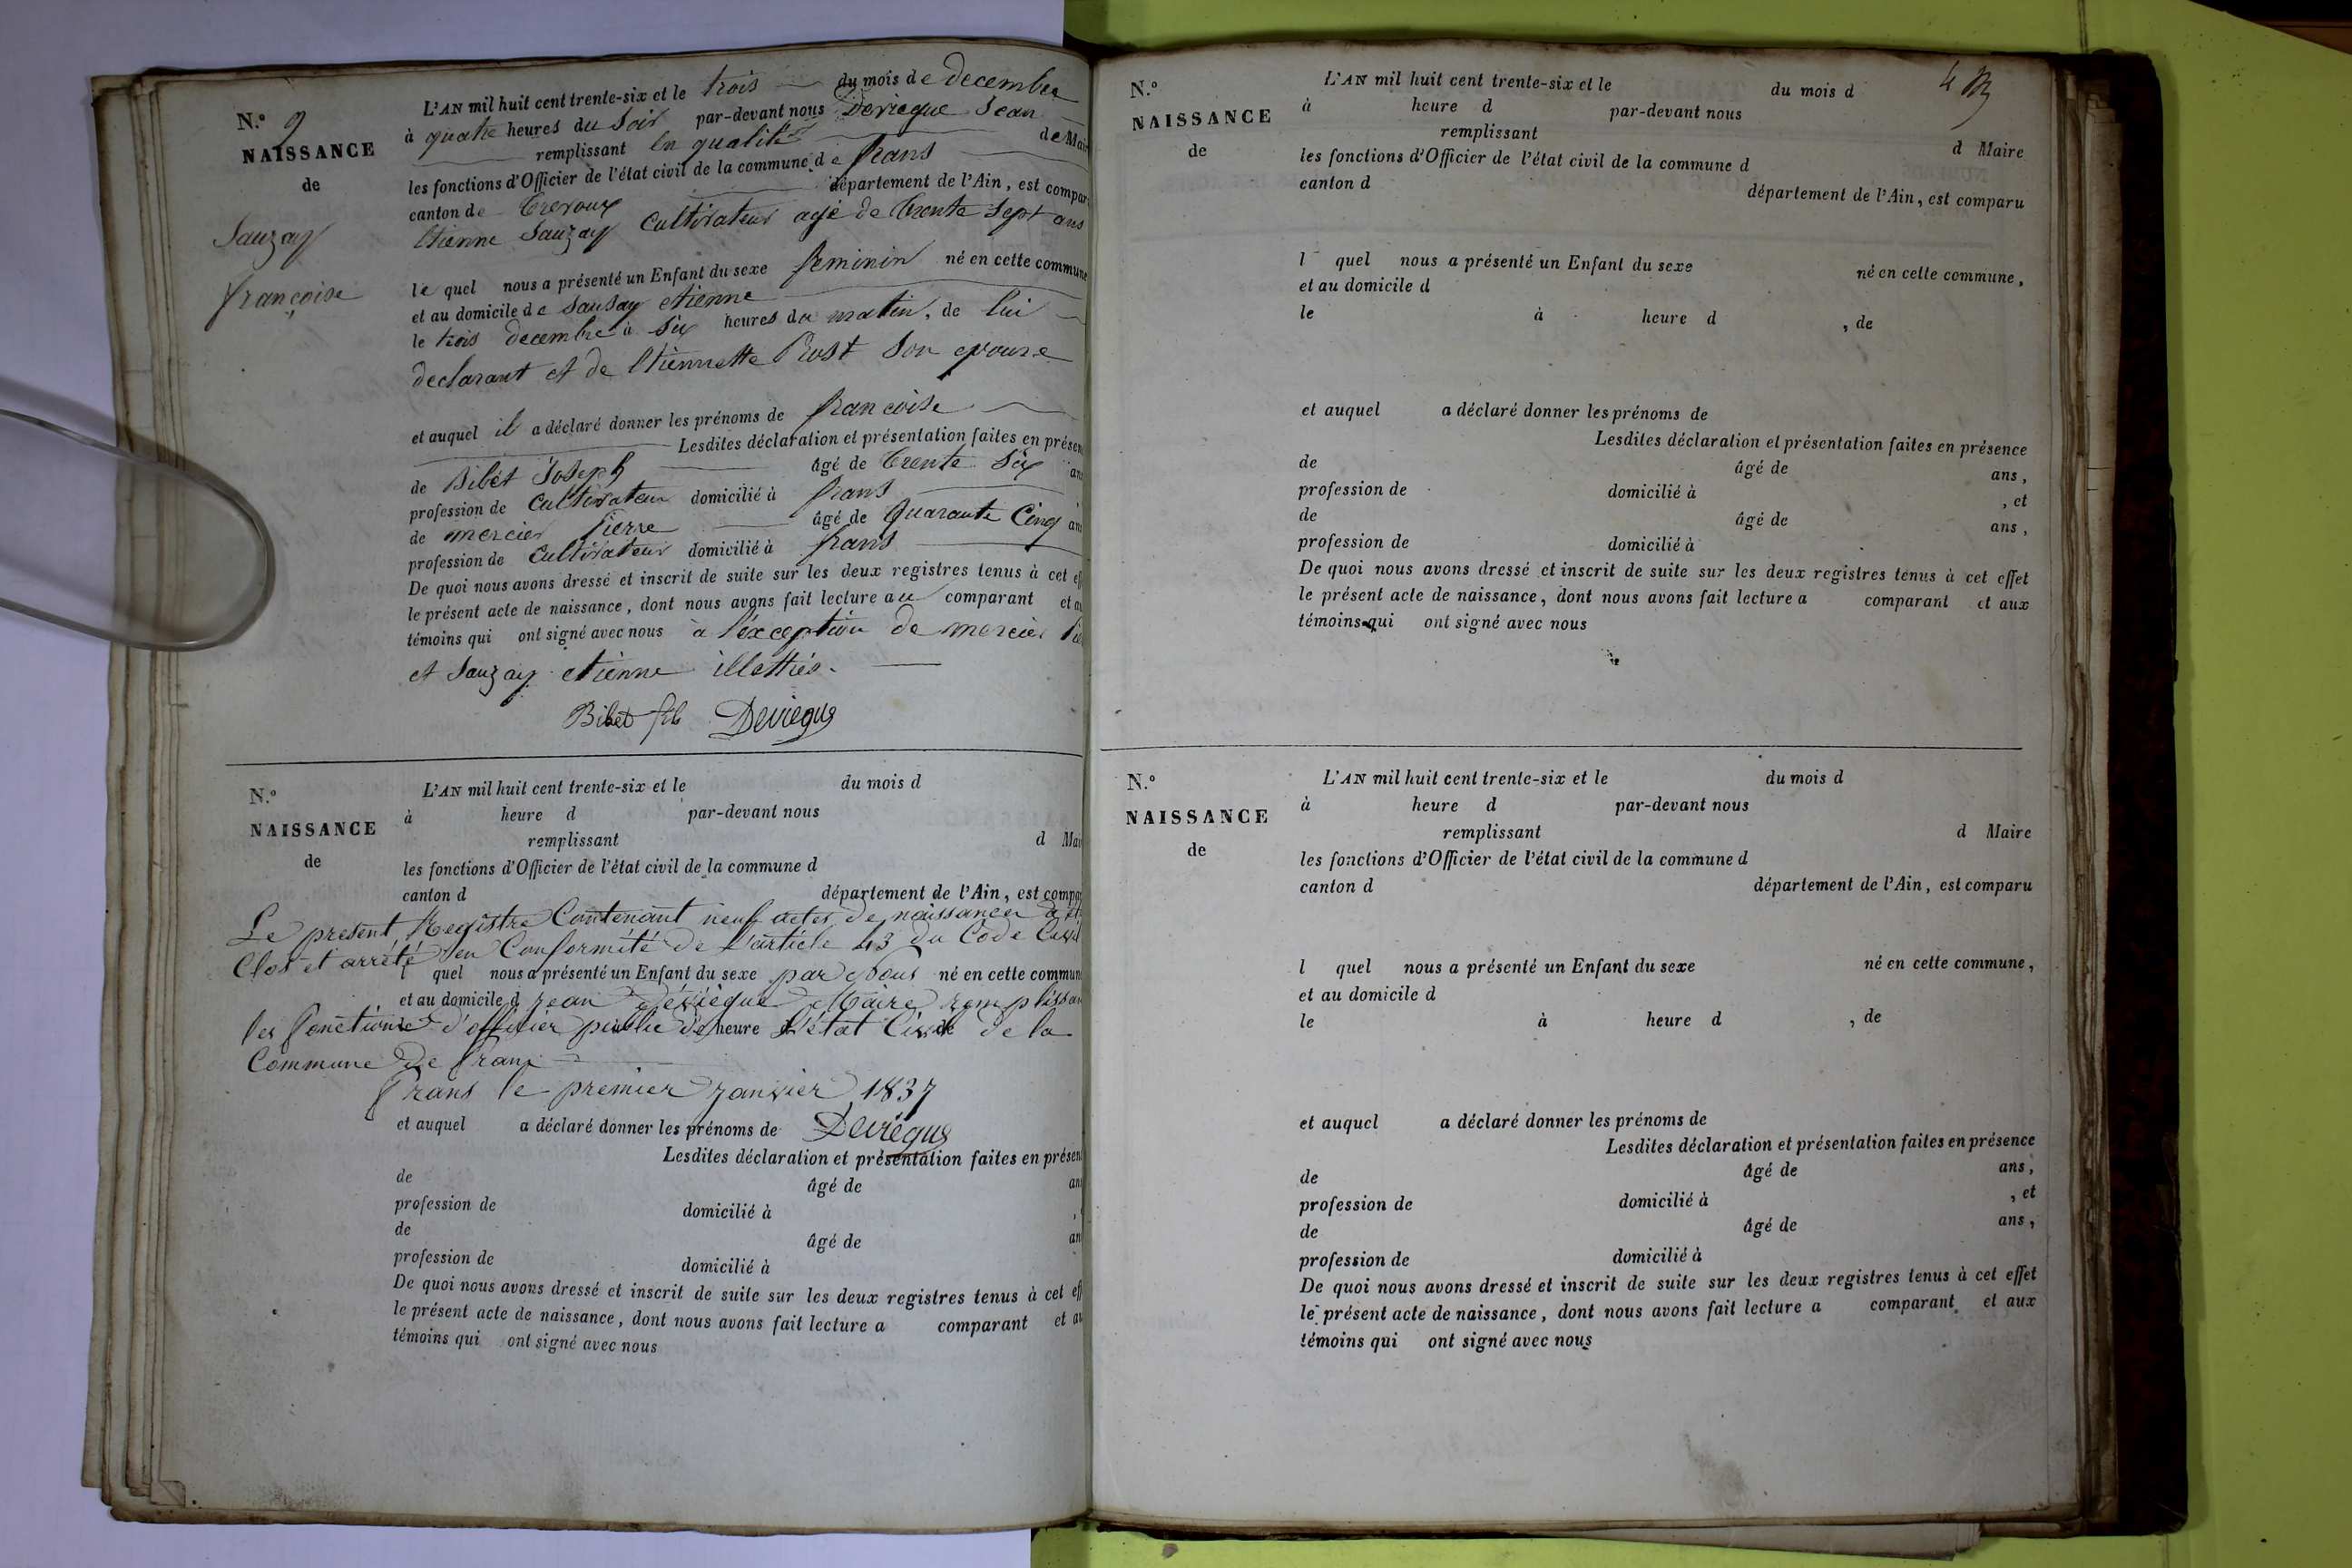 N.° 9
NAISSANCE
de
Sauzay
françoise
L'AN mil huit cent trente-six et le trois du mois de decembre
à quatre heures du soir par-devant nous Devieque Jean
remplissant en qualité de Mair
les fonctions d'Officier de l'état civil de la commune de frans
canton de trevoux département de l'Ain, est compar
Etienne Sauzay Cultivateur agé de trente sept ans
le quel nous a présenté un Enfant du sexe feminin né en cette commune
et au domicile de Sausay etienne
le trois decembre à six heures du matin, de lui
declarant et de Etiennette Prost son epouse
et auquel il a déclaré donner les prénoms de francoise
Lesdites déclaration et présentation faites en présen
de Bibet Joseph âgé de trente six an
profession de Cultivateur domicilié à frans
de mercier Pierre âgé de Quarante Cinq an
profession de Cultivateur domicilié à frans
De quoi nous avons dressé et inscrit de suite sur les deux registres tenus à cet eff
le présent acte de naissance, dont nous avons fait lecture au comparant et au
témoins qui ont signé avec nous à l'exception de mercier Pie
et Sauzay etienne illettrés.
Bibet fils Devieque
N.°
NAISSANCE
de
L'AN mil huit cent trente-six et le du mois d
à heure d par-devant nous
remplissant d Mair
les fonctions d'Officier de l'état civil de la commune d
canton d département de l'Ain, est compar
Le present Registre Contenant neuf actes de naissances a été
Clos et arrêté en Conformité de L'article 43 du Code Civil
l quel nous a présenté un Enfant du sexe par Nous né en cette commun
et au domicile d jean Déviègue Maire remplissan
les fonctions d'officier public de heure d L'état Civil de de la
Commune de frans
Frans le premier janvier 1837
et auquel a déclaré donner les prénoms de Devieque
Lesdites déclaration et présentation faites en présen
de âgé de an
profession de domicilié à ,
de âgé de an
profession de domicilié à
De quoi nous avons dressé et inscrit de suite sur les deux registres tenus à cet eff
le présent acte de naissance, dont nous avons fait lecture a comparant et au
témoins qui ont signé avec nous
4
N.°
NAISSANCE
de
L'AN mil huit cent trente-six et le du mois d
à heure d par-devant nous
remplissant d Maire
les fonctions d'Officier de l'état civil de la commune d
canton d département de l'Ain, est comparu
l quel nous a présenté un Enfant du sexe né en cette commune,
et au domicile d
le à heure d , de
et auquel a déclaré donner les prénoms de
Lesdites déclaration et présentation faites en présence
de âgé de ans,
profession de domicilié à , et
de âgé de ans,
profession de domicilié à
De quoi nous avons dressé et inscrit de suite sur les deux registres tenus à cet effet
le présent acte de naissance, dont nous avons fait lecture a comparant et aux
témoins qui ont signé avec nous
N.°
NAISSANCE
de
L'AN mil huit cent trente-six et le du mois d
à heure d par-devant nous
remplissant d Maire
les fonctions d'Officier de l'état civil de la commune d
canton d département de l'Ain, est comparu
l quel nous a présenté un Enfant du sexe né en cette commune,
et au domicile d
le à heure d , de
et auquel a déclaré donner les prénoms de
Lesdites déclaration et présentation faites en présence
de âgé de ans,
profession de domicilié à , et
de âgé de ans,
profession de domicilié à
De quoi nous avons dressé et inscrit de suite sur les deux registres tenus à cet effet
le présent acte de naissance, dont nous avons fait lecture a comparant et aux
témoins qui ont signé avec nous